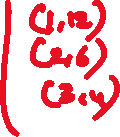 (1,12)
(2,6)
(3,4)